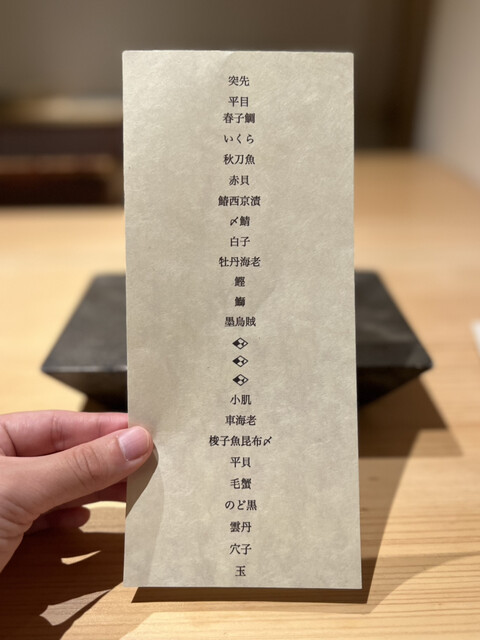 突先
平目
春子鯛
いくら
秋刀魚
赤貝
鰆西京漬
〆鯖
白子
牡丹海老
鰹
鰤
墨烏賊
小肌
車海老
梭子魚昆布〆
平貝
毛蟹
のど黒
雲丹
穴子
玉